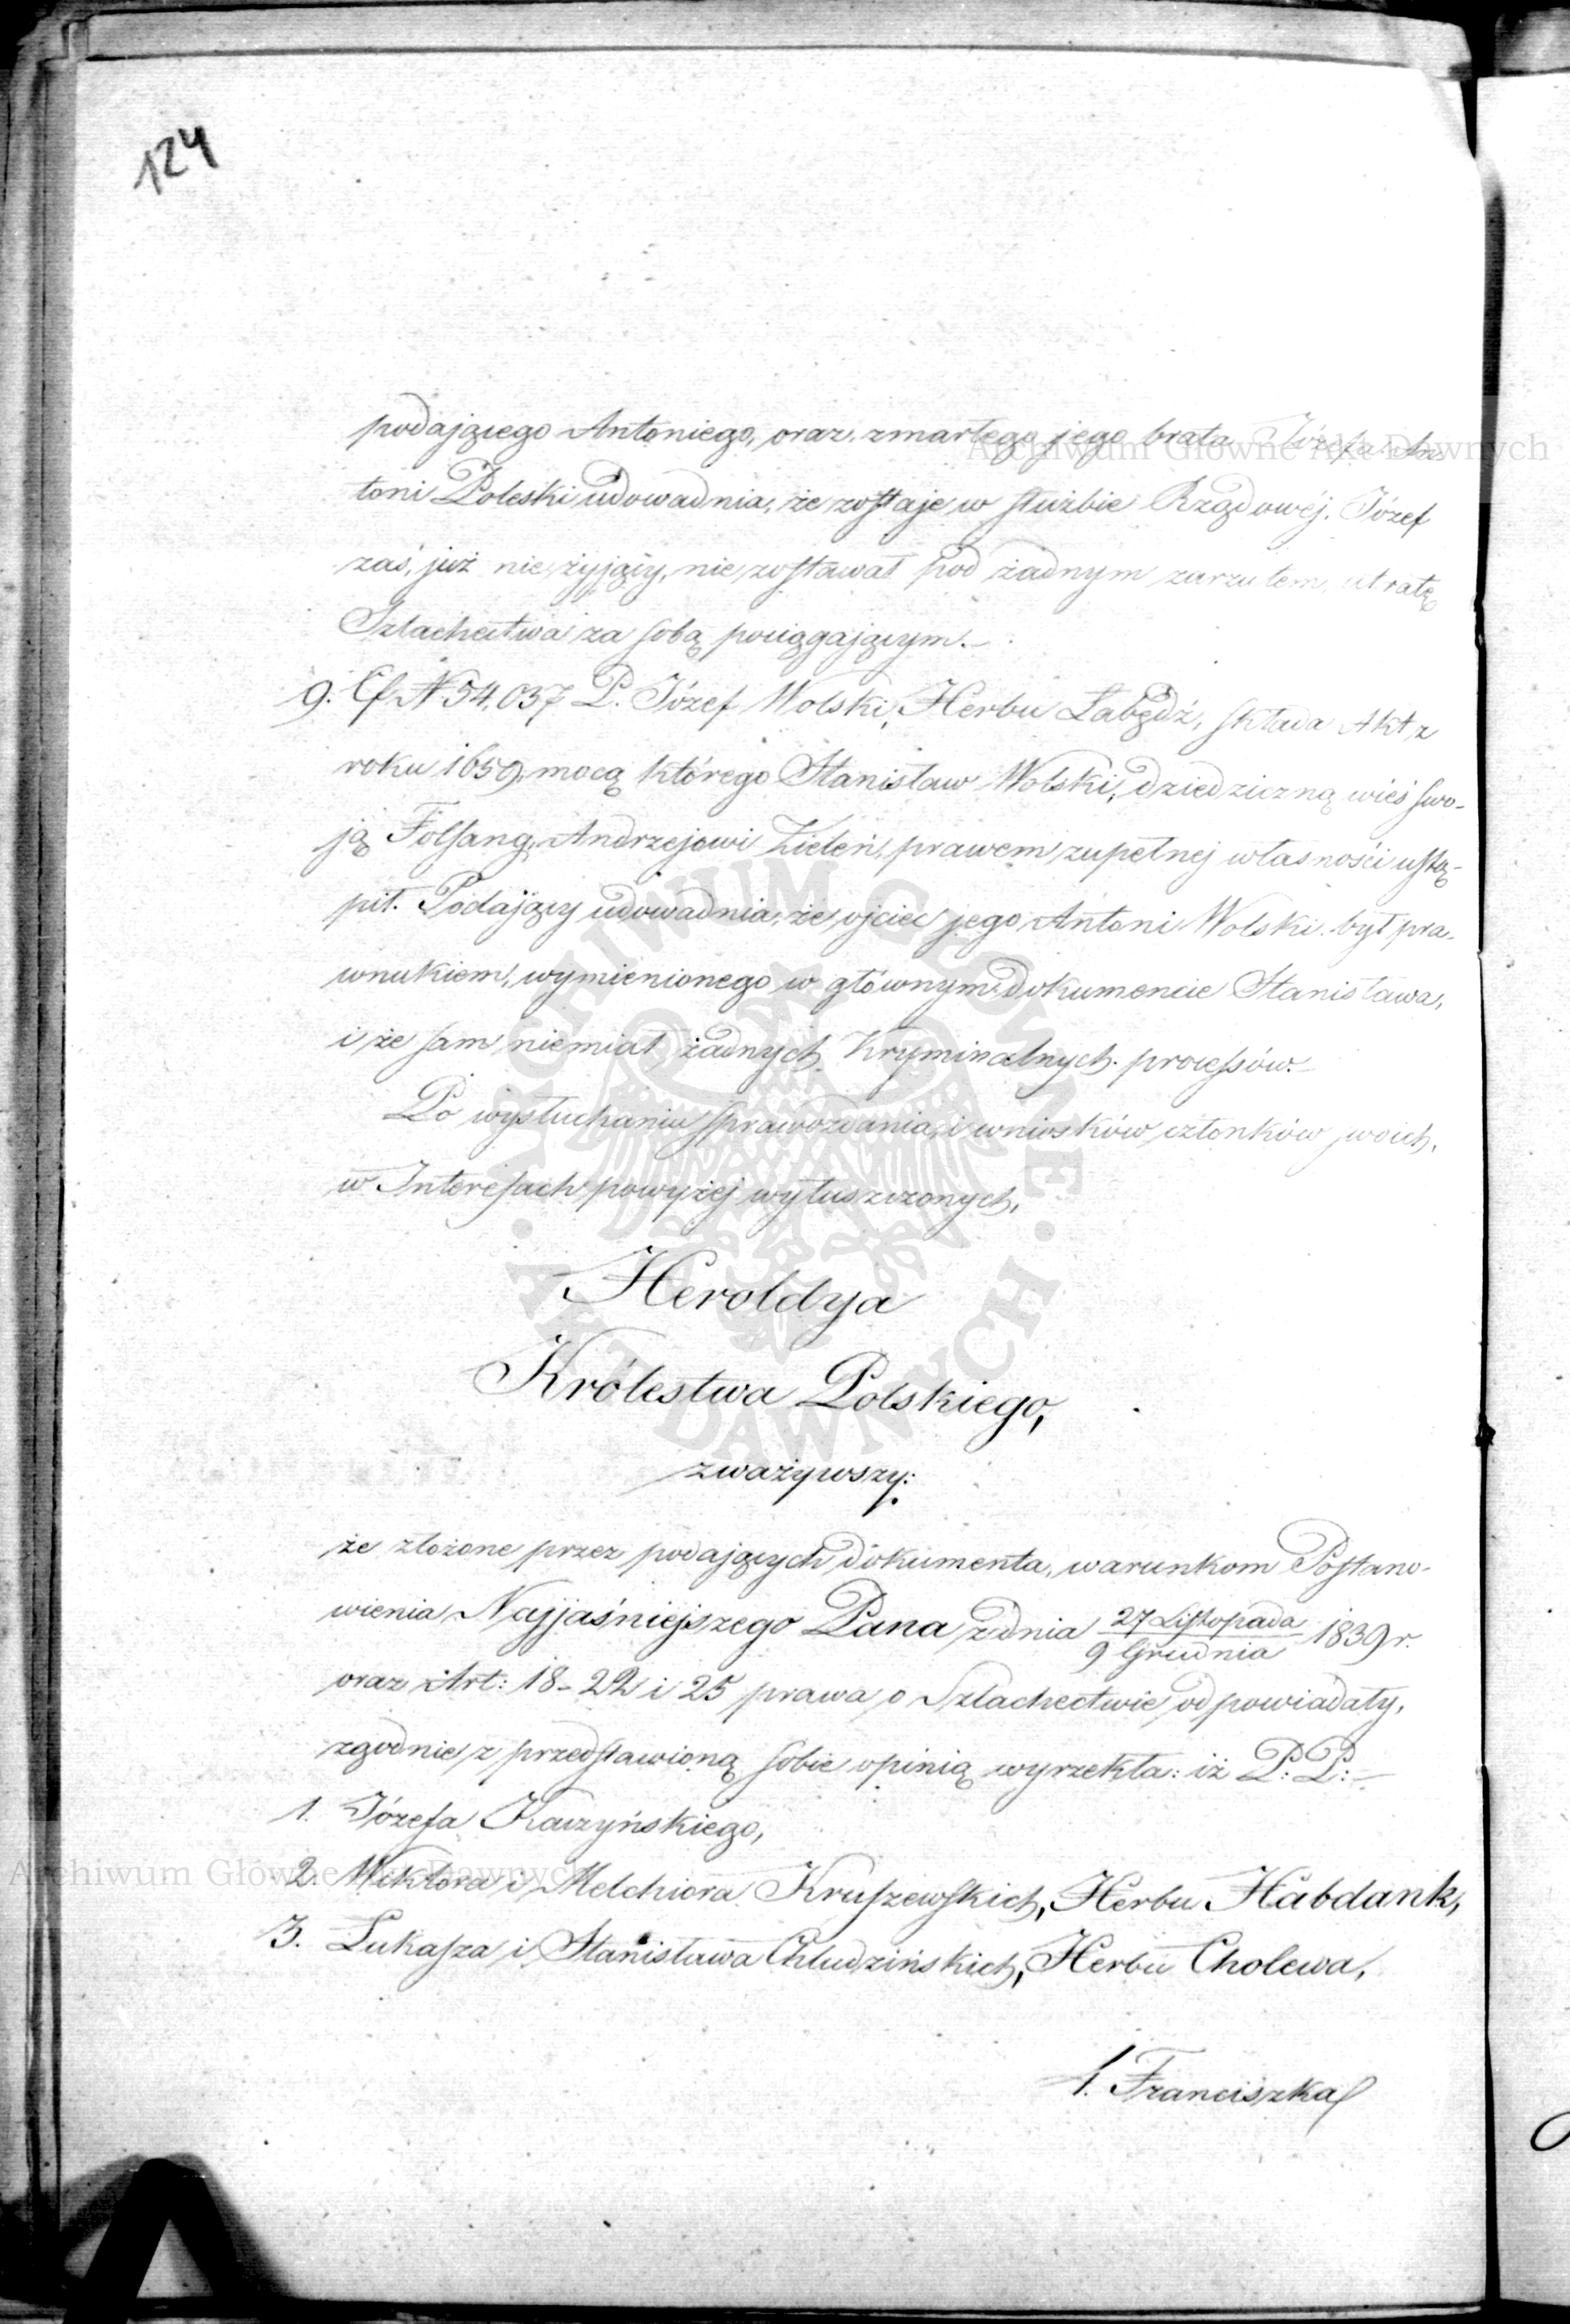 124
podającego Antoniego, oraz zmarłego jego brata Józefa. An-
toni Poleski udowadnia, że zostaje w służbie Rządowéj. Józef
zaś, już nie żyjący, nie zostawał pod żadnym zarzutem, utratę
Szlachectwa za sobą pociągającym.—
9. Cf N. 54,037 P. Józef Wolski, Herbu Łabędź, składa Akt z
roku 1659, mocą którego Stanisław Wolski, dziedziczną wieś swo-
ją Folsang, Andrzejowi Zieleń, prawem zupełnej własności ustą-
pił. Podający udowadnia, że ojciec jego Antoni Wolski był pra-
wnukiem, wymienionego w głównym dokumencie Stanisława,
i że sam niemiał żadnych Kryminalnych processów.—
Po wysłuchaniu sprawozdania, i wniosków członków swoich,
w Interesach powyżej wyłuszczonych,
Heroldya
Królestwa Polskiego,
zważywszy:
że złożone przez podających dokumenta, warunkom Postano-
wienia Najjaśniejszego Pana z dnia 27 Listopada 1839 r.
9 Grudnia
oraz Art: 18-22 i 25 prawa o Szlachectwie odpowiadały,
zgodnie z przedstawioną sobie opinią wyrzekła: iż P: P:—
1. Józefa Kaczyńskiego,
2. Wiktora i Melchiora Kruszewskich, Herbu Habdank,
3. Łukasza i Stanisława Chludzińskich, Herbu Cholewa,
1. Franciszka
Archiwum Główne Akt Dawnych
Archiwum Główne Akt Dawnych
ARCHIWUM GŁÓWNE
AKT DAWNYCH